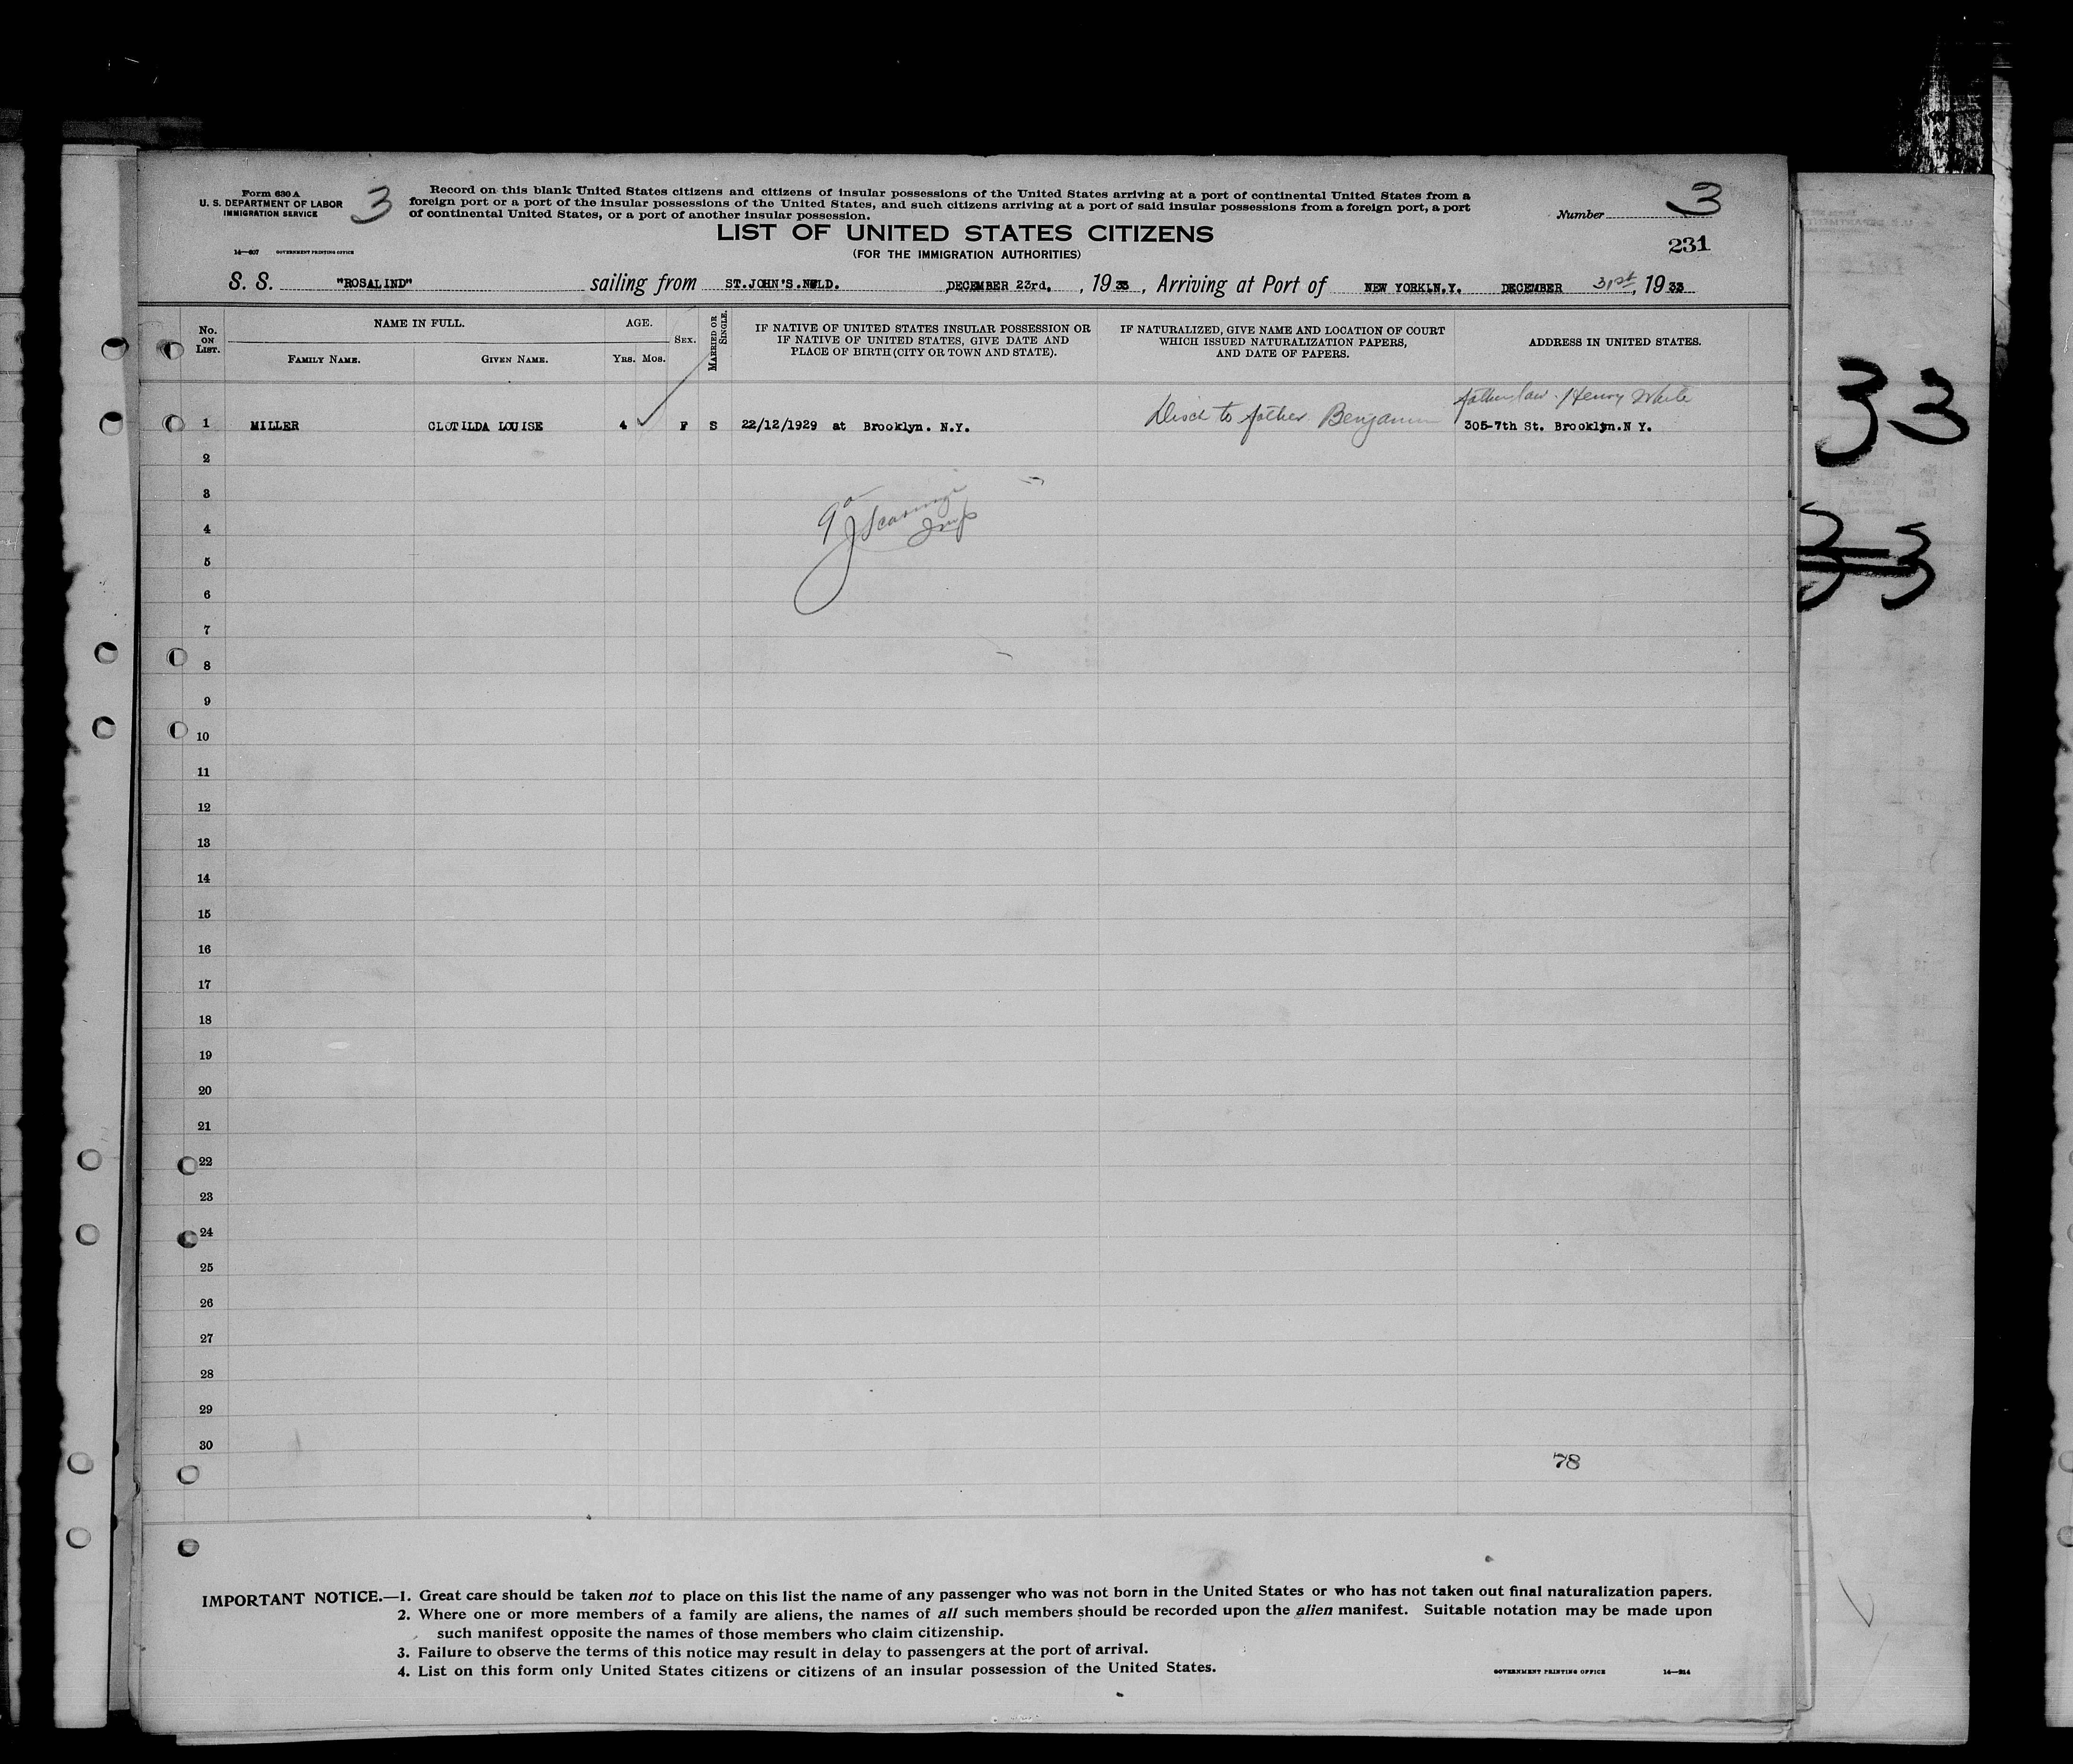 Form 630 A
U. S. DEPARTMENT OF LABOR
IMMIGRATION SERVICE
3
14—607 GOVERNMENT PRINTING OFFICE
Record on this blank United States citizens and citizens of insular possessions of the United States arriving at a port of continental United States from a
foreign port or a port of the insular possessions of the United States, and such citizens arriving at a port of said insular possessions from a foreign port, a port
of continental United States, or a port of another insular possession.
Number 3
LIST OF UNITED STATES CITIZENS
231
(FOR THE IMMIGRATION AUTHORITIES)
S. S. "ROSALIND" sailing from ST.JOHN'S.NFLD. DECEMBER 23rd. , 1933 , Arriving at Port of NEW YORK.N.Y. DECEMBER 31st, 1933
No. ON LIST.
NAME IN FULL.
FAMILY NAME. GIVEN NAME.
AGE.
Yrs. Mos.
SEX.
MARRIED OR SINGLE.
IF NATIVE OF UNITED STATES INSULAR POSSESSION OR
IF NATIVE OF UNITED STATES, GIVE DATE AND
PLACE OF BIRTH (CITY OR TOWN AND STATE).
IF NATURALIZED, GIVE NAME AND LOCATION OF COURT
WHICH ISSUED NATURALIZATION PAPERS,
AND DATE OF PAPERS.
ADDRESS IN UNITED STATES.
father law Henry White
1 MILLER CLOTILDA LOUISE 4 F S 22/12/1929 at Brooklyn. N.Y. Disch to father Benjamin 305-7th St. Brooklyn.N Y.
2
3
4
5
6
7
8
9
10
11
12
13
14
15
16
17
18
19
20
21
22
23
24
25
26
27
28
29
30
78
IMPORTANT NOTICE.—1. Great care should be taken not to place on this list the name of any passenger who was not born in the United States or who has not taken out final naturalization papers.
2. Where one or more members of a family are aliens, the names of all such members should be recorded upon the alien manifest. Suitable notation may be made upon
such manifest opposite the names of those members who claim citizenship.
3. Failure to observe the terms of this notice may result in delay to passengers at the port of arrival.
4. List on this form only United States citizens or citizens of an insular possession of the United States.
GOVERNMENT PRINTING OFFICE 14—214
33
33